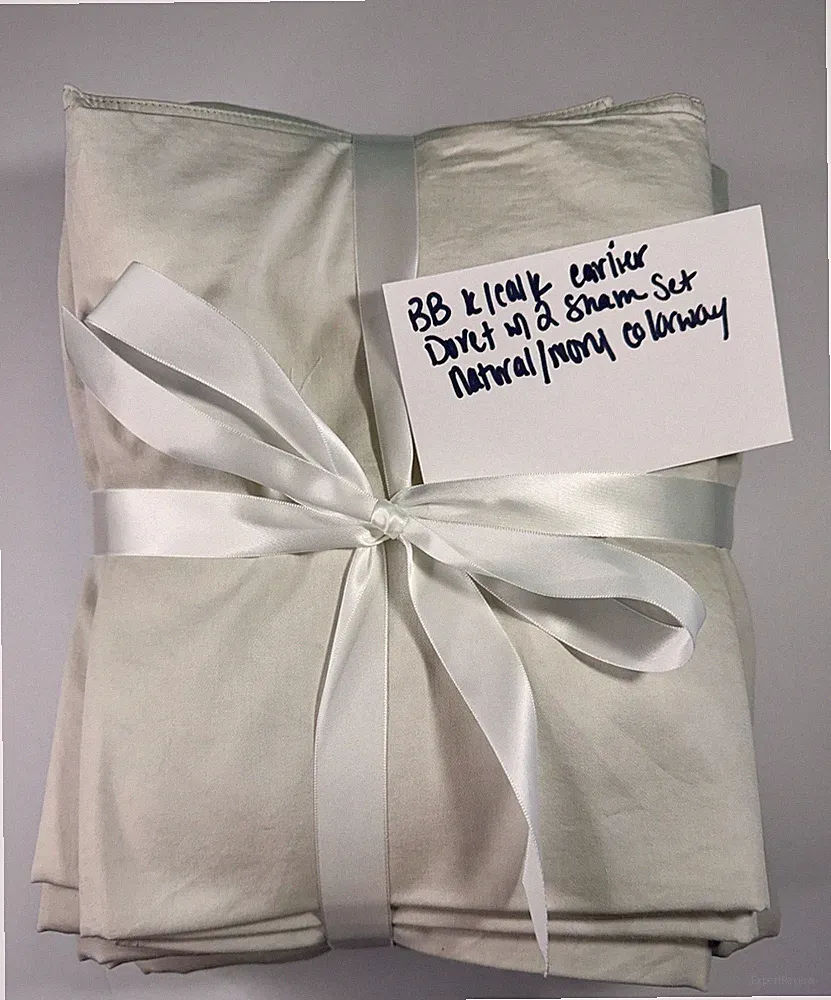 BB K/Calk earlier
Dovet w/ 2 Sham Set
Natural/Ivory Colorway
ExpertReview